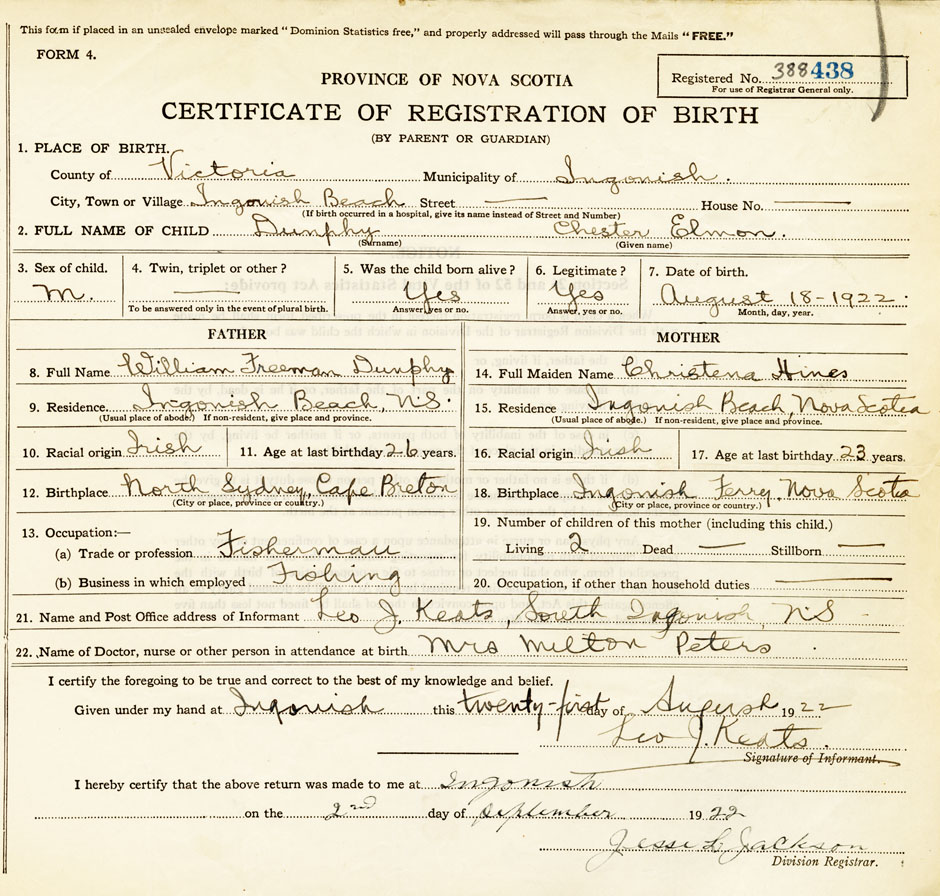 This form if placed in an unsealed envelope marked "Dominion Statistics free," and properly addressed will pass through the Mails "FREE."
FORM 4.
Registered No. 388438
For use of Registrar General only.
PROVINCE OF NOVA SCOTIA
CERTIFICATE OF REGISTRATION OF BIRTH
(BY PARENT OR GUARDIAN)
1. PLACE OF BIRTH.
County of Victoria Municipality of Ingonish.
City, Town or Village Ingonish Beach Street — House No. —
(If birth occurred in a hospital, give its name instead of Street and Number)
2. FULL NAME OF CHILD Dunphy Chester Elmon.
(Surname) (Given name)
3. Sex of child. 4. Twin, triplet or other? 5. Was the child born alive? 6. Legitimate? 7. Date of birth.
M. — Yes Yes August 18-1922.
To be answered only in the event of plural birth. Answer, yes or no. Answer, yes or no. Month, day, year.
FATHER MOTHER
8. Full Name William Freeman Dunphy 14. Full Maiden Name Christena Hines
9. Residence. Ingonish Beach, N.S. 15. Residence Ingonish Beach, Nova Scotia
(Usual place of abode.) If non-resident, give place and province. (Usual place of abode.) If non-resident, give place and province.
10. Racial origin Irish 11. Age at last birthday 26 years. 16. Racial origin Irish 17. Age at last birthday 23 years.
12. Birthplace North Sydney, Cape Breton 18. Birthplace Ingonish Ferry, Nova Scotia
(City or place, province or country.) (City or place, province or country.)
13. Occupation:— 19. Number of children of this mother (including this child.)
(a) Trade or profession Fisherman Living 2 Dead — Stillborn —
(b) Business in which employed Fishing 20. Occupation, if other than household duties —
21. Name and Post Office address of Informant Leo J. Keats, South Ingonish, NS
22. Name of Doctor, nurse or other person in attendance at birth Mrs Milton Peters.
I certify the foregoing to be true and correct to the best of my knowledge and belief.
Given under my hand at Ingonish this twenty-first day of August 1922
Leo J. Keats.
Signature of Informant.
I hereby certify that the above return was made to me at Ingonish
on the 2nd day of September 1922
Jesse L Jackson
Division Registrar.